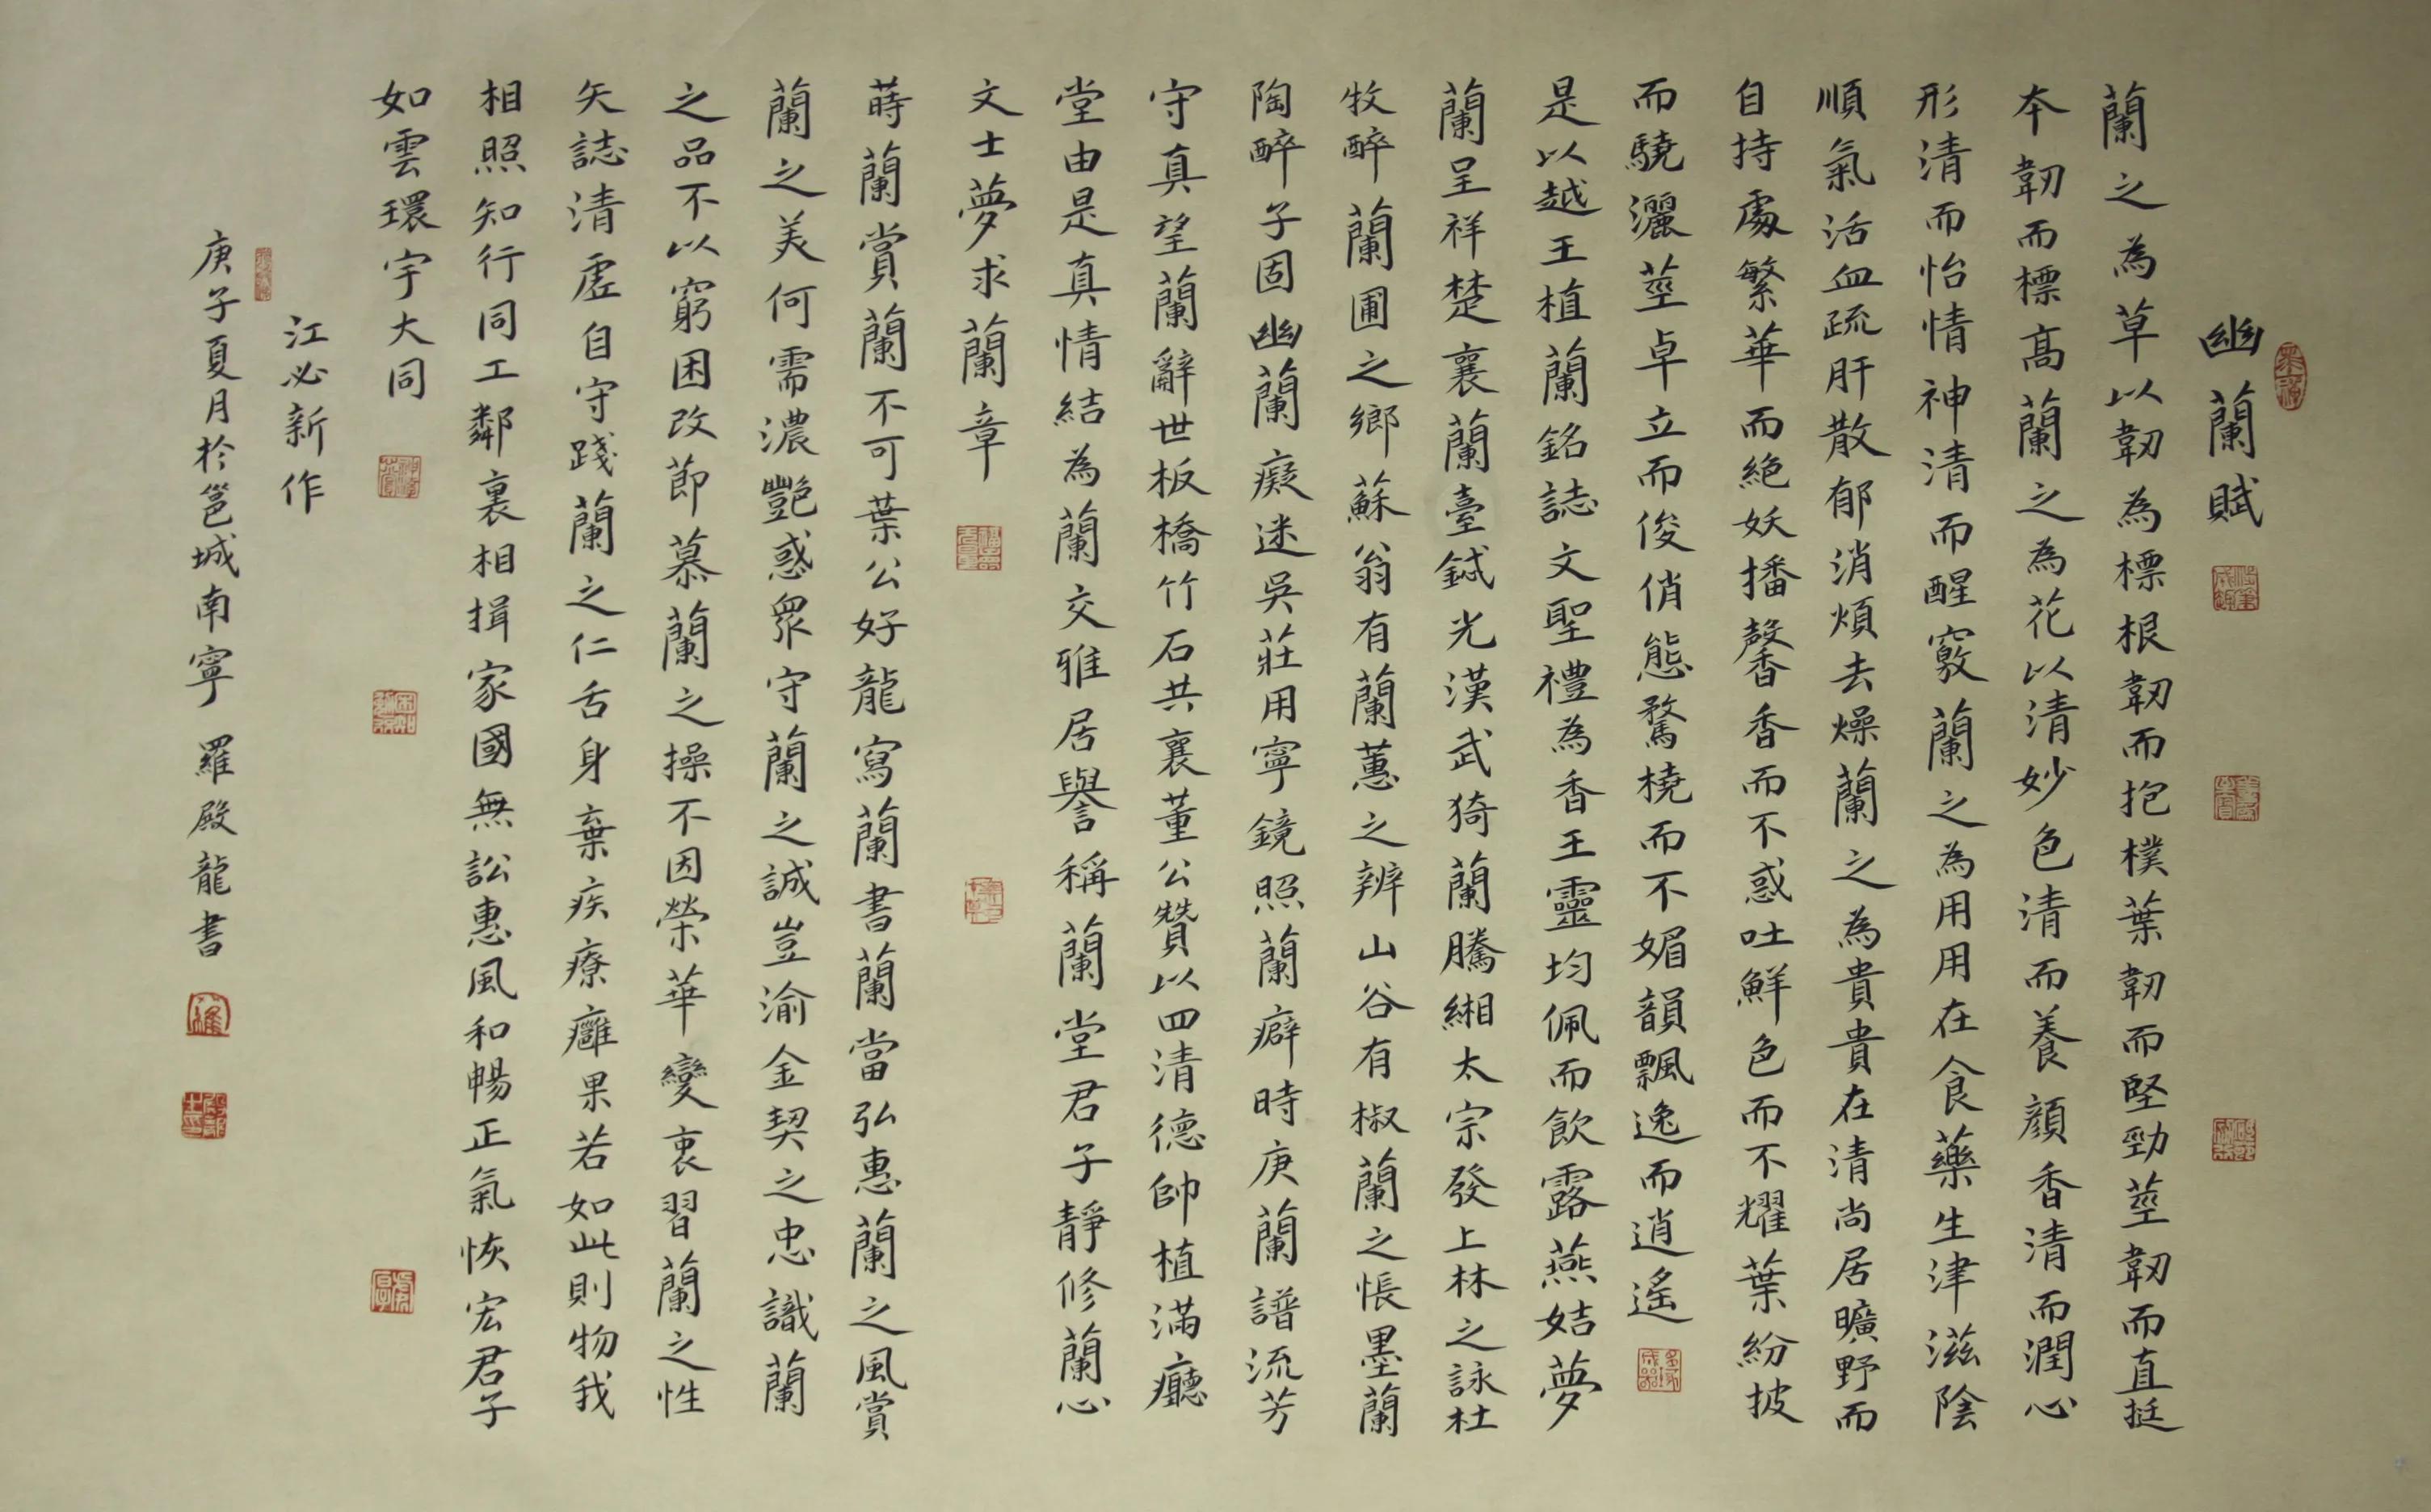 幽蘭賦
蘭之為草以韌為標根韌而抱樸葉韌而堅勁莖韌而直挺
本韌而標高蘭之為花以清妙色清而養顏香清而潤心
形清而怡情神清而醒竅蘭之為用用在食藥生津滋陰
順氣活血疏肝散郁消煩去燥蘭之為貴貴在清尚居曠野而
自持處繁華而絕妖播馨香而不惑吐鮮色而不耀葉紛披
而驍灑莖卓立而俊俏態騖橈而不媚韻飄逸而逍遙
是以越王植蘭銘誌文聖禮為香王靈均佩而飲露燕姞夢
蘭呈祥楚襄蘭臺鋱光漢武猗蘭騰緗太宗發上林之詠杜
牧醉蘭圃之鄉蘇翁有蘭蕙之辨山谷有椒蘭之悵墨蘭
陶醉子固幽蘭癡迷吳莊用寧鏡照蘭癖時庚蘭譜流芳
守真望蘭辭世板橋竹石共襄董公贊以四清德帥植滿廳
堂由是真情結為蘭交雅居譽稱蘭堂君子靜修蘭心
文士夢求蘭章
蒔蘭賞蘭不可葉公好龍寫蘭書蘭當弘惠蘭之風賞
蘭之美何需濃艷惑眾守蘭之誠豈渝金契之忠識蘭
之品不以窮困改節慕蘭之操不因榮華變衷習蘭之性
矢誌清虛自守踐蘭之仁舌身棄疾療癰果若如此則物我
相照知行同工鄰裏相揖家國無訟惠風和暢正氣恢宏君子
如雲環宇大同
江必新作
庚子夏月於邕城南寧 羅殿龍書